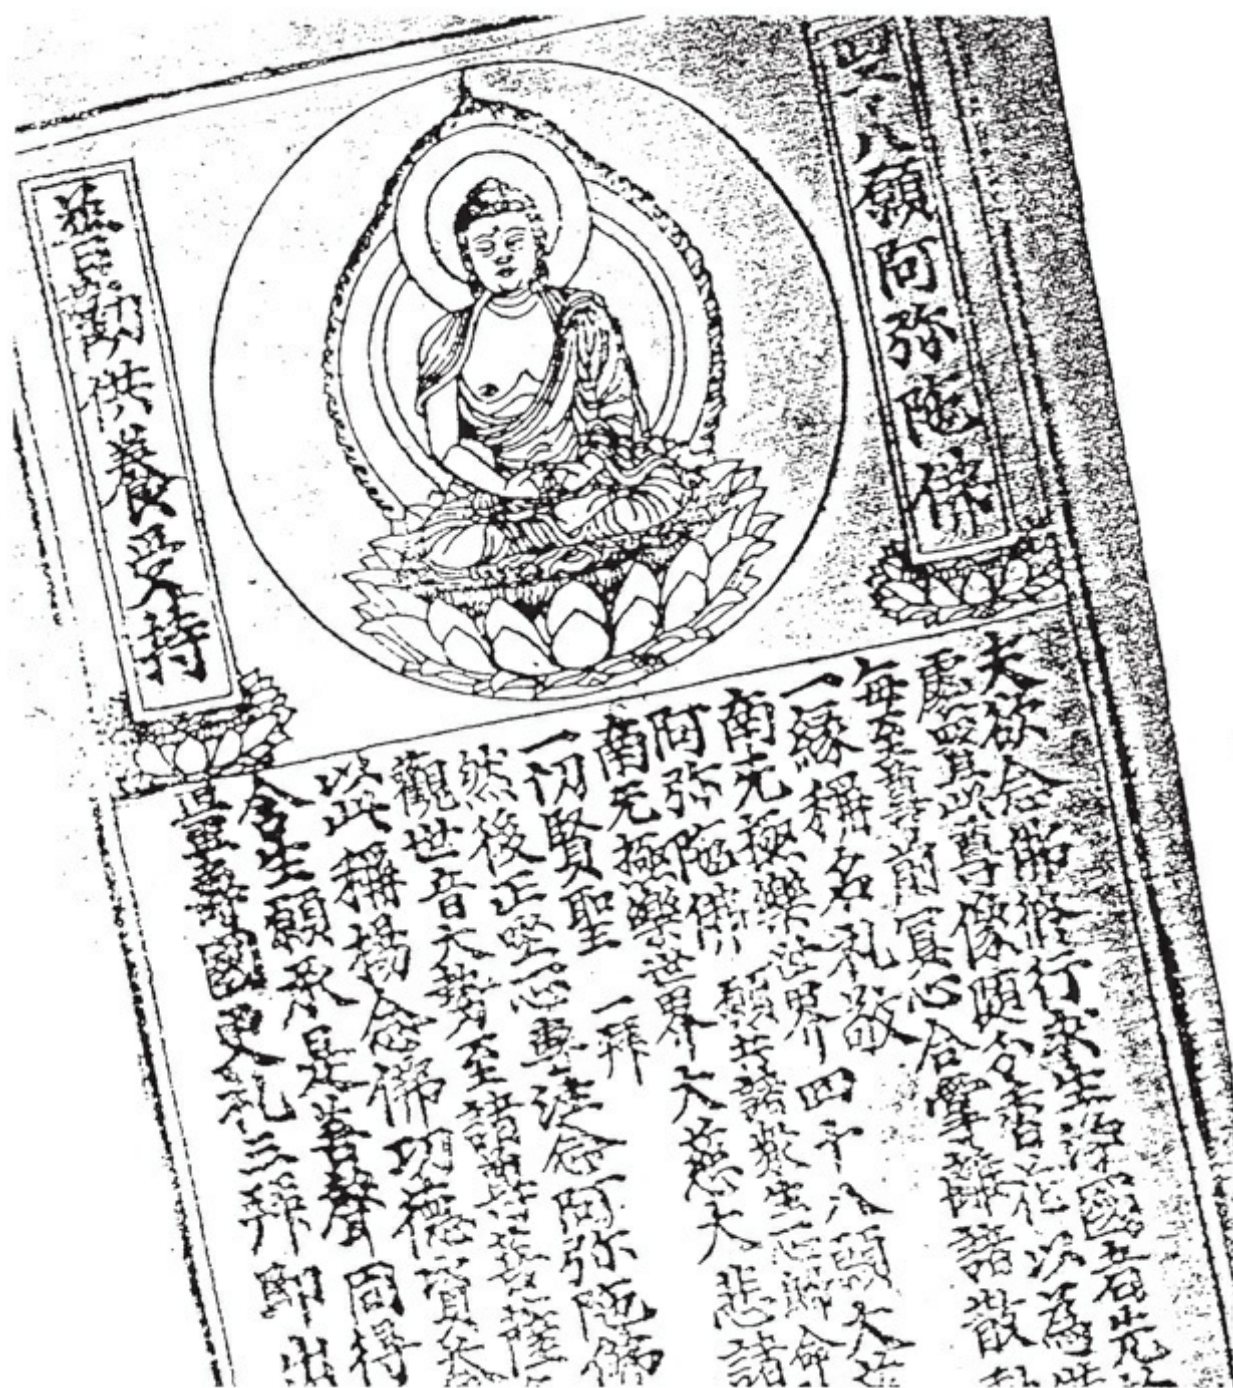 四十八願阿弥陀佛
夫欲念佛修行求生淨國者先
處置此尊像随分香花以為
每至尊前冥心合掌離諸散
一緣稱名礼敬
南无極樂世界 四十八願大慈
阿弥陀佛 願共諸衆生一心歸命
南无極樂世界大慈大悲諸
一切賢聖 一拜
然後正坐一心專注念阿弥陀佛
觀世音大勢至諸尊菩薩
以此稱揚念佛功德資益
含生願承是善聲同得
量壽國更礼三拜即出
普勸供養受持